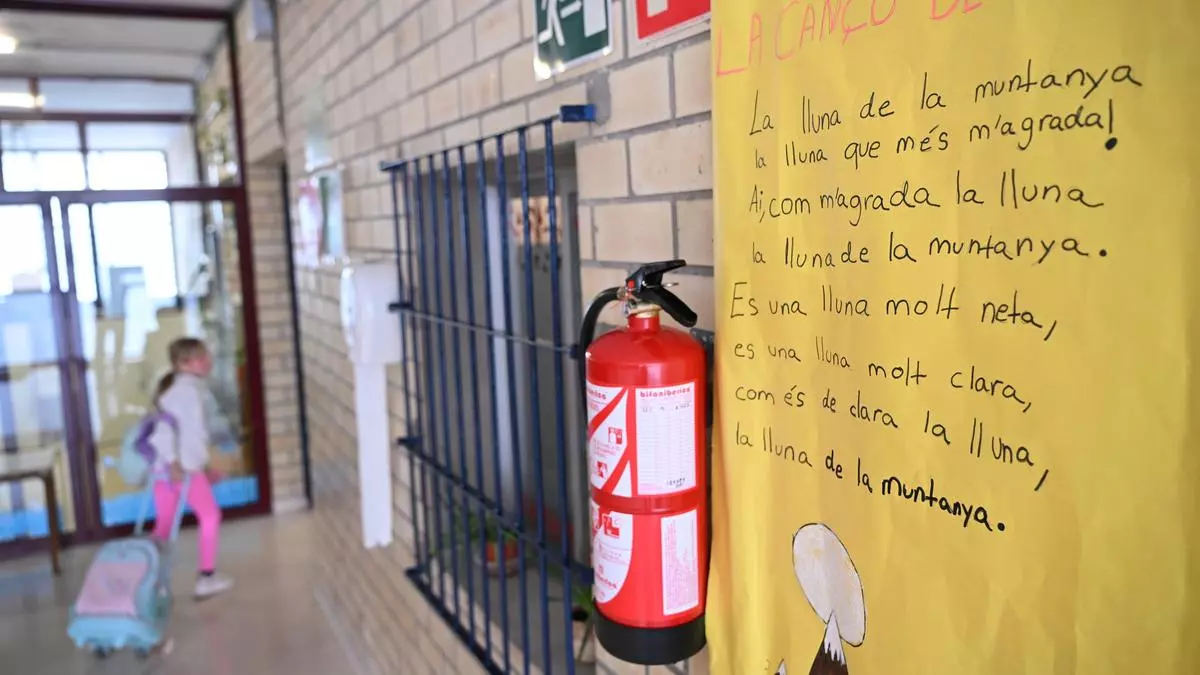 LA CANÇÓ DE
La lluna de la muntanya
la lluna que més m'agrada!
Ai, com m'agrada la lluna
la lluna de la muntanya.
Es una lluna molt neta,
es una lluna molt clara,
com és de clara la lluna,
la lluna de la muntanya.
bifoniberica